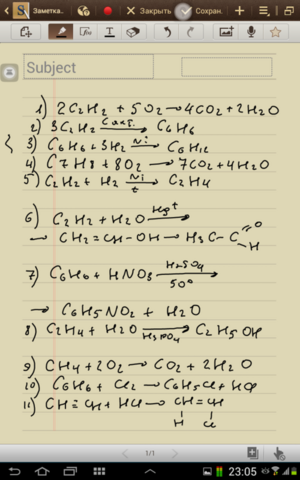 Заметка.
Закрыть
Сохран.
Subject
1) 2C2H2 + 5O2 → 4CO2 + 2H2O
2) 3C2H2 → C6H6
3) C6H6 + 3H2 Ni→ C6H12
4) C7H8 + 8O2 → 7CO2 + 4H2O
5) C2H2 + H2 Ni→ t C2H4
6) C2H2 + H2O Hg+→
→ CH2=CH-OH → H3C-C =O -H
7) C6H6 + HNO3 H2SO4→ 50°
→ C6H5NO2 + H2O
8) C2H4 + H2O → H3PO4 C2H5OH
9) CH4 + 2O2 → CO2 + 2H2O
10) C6H6 + Cl2 → C6H5Cl + HCl
11) CH≡CH + HCl → CH=CH
H Cl
1/1
23:05